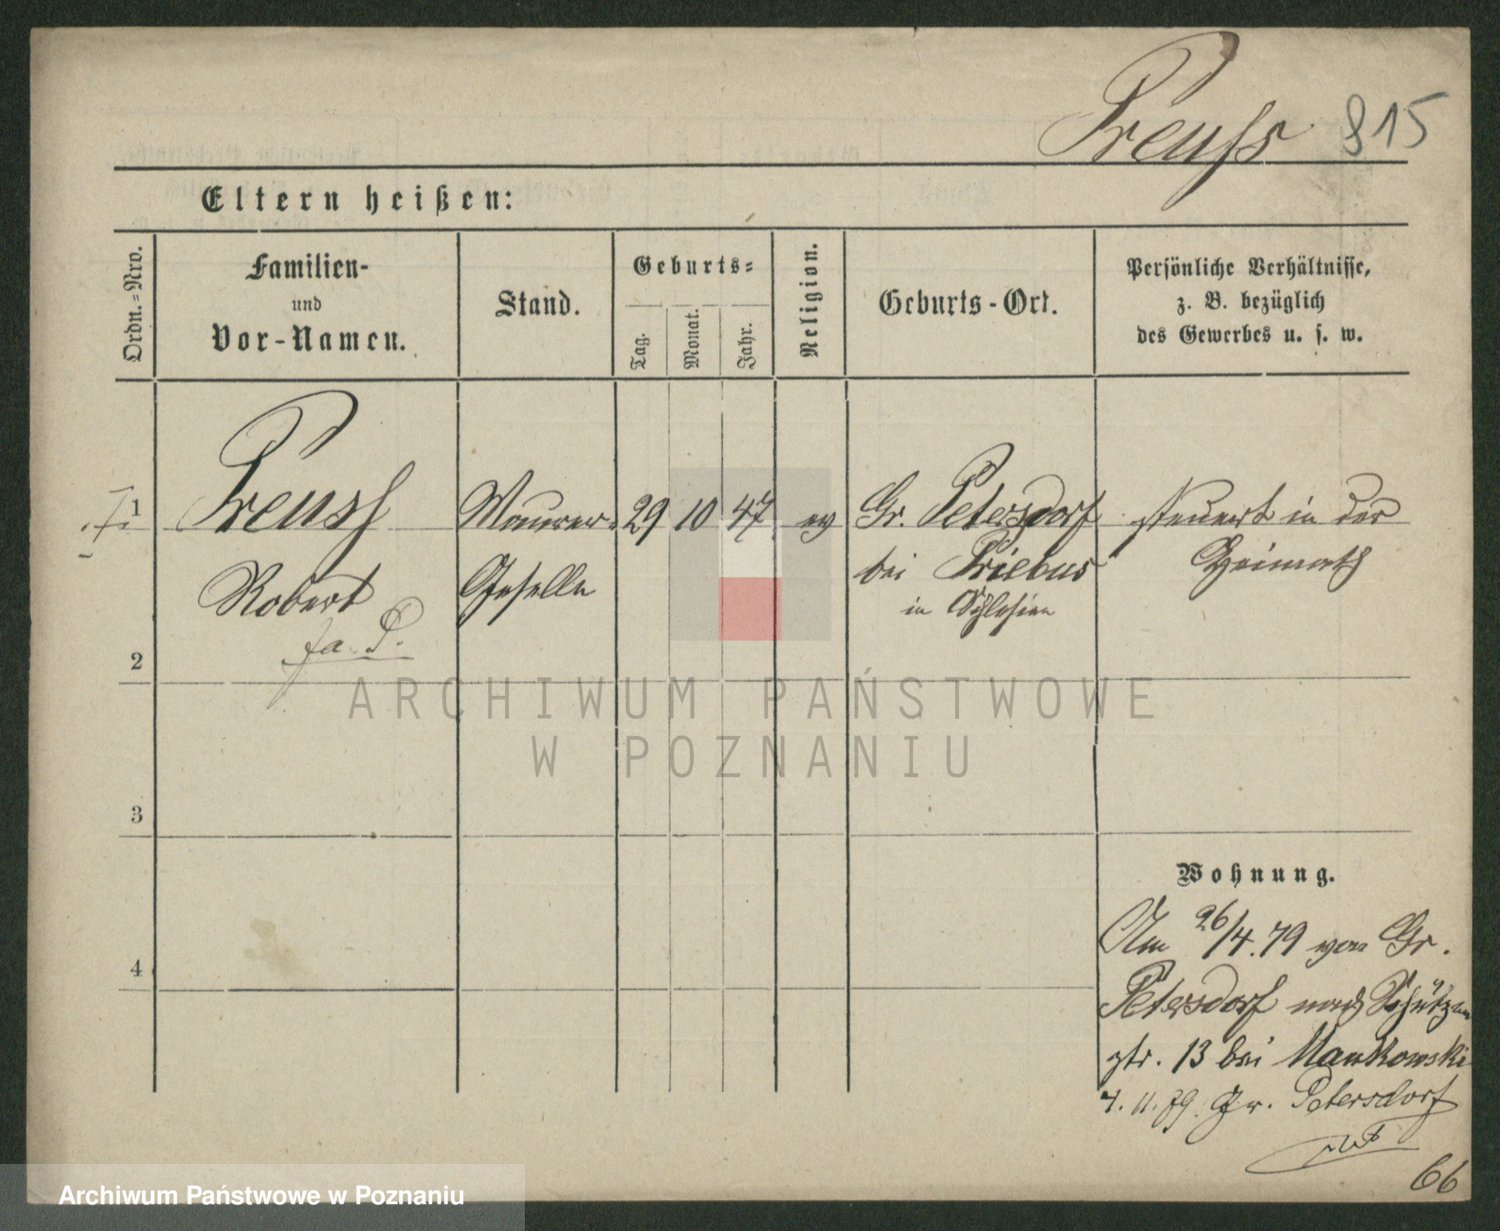 Preuſs 815
Eltern heißen:
Ordn.=Nro.
Familien-
und
Vor-Namen.
Stand.
Geburts=
Tag.
Monat.
Jahr.
Religion.
Geburts-Ort.
Persönliche Verhältnisse,
z. B. bezüglich
des Gewerbes u. s. w.
1
Preuss
Robert
Maurer=
Geselle
29 10 47 ev
Gr. Petersdorf
bei Priebus
in Schlesien
steuert in der
Heimath
2
ARCHIWUM PAŃSTWOWE
W POZNANIU
3
4
Wohnung.
Am 26/4.79 von Gr.
Petersdorf nach Schützen
str. 13 bei Mankowski
4.11.79. Gr. Petersdorf
66
Archiwum Państwowe w Poznaniu